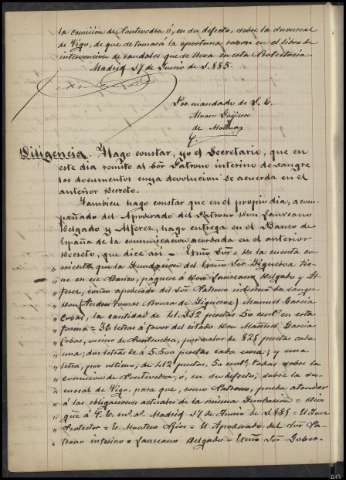 la comisión de Pontevedra ó, en su defecto, sobre la sucursal
de Vigo, de que se tomará la oportuna razon en el libro de
intervencion de caudales que se lleva en esta
Madrid 27 de Junio de 1.885.
Por mandado de S. E.
Diligencia. Hago constar, yo el Secretario, que en
este dia remito al Sor Patrono interino de sangre
los documentos cuya devolucion se acuerda en el
anterior decreto.
Tambien hago constar que en el propio dia, acom-
pañado del Apoderado del Patrono Don Laureano
Delgado y Alferez, hago entrega en el Banco de
España de la comunicacion acordada en el anterior
decreto, que dice asi
cuenta que la Fundacion del
ne en ese Banco, pagueis á Don Laureano Delgado y Al-
ferez, como apoderado del Sor Patrono interino de la sangre
Manuel Garcia
Cobas, la cantidad de 50 cents en esta
forma = 36 letras á favor del citado Don Manuel Garcia
Cobas, vecino de Pontevedra, de 825 pesetas cada
una; dos letras de 5.500 pesetas cada una; y una
letra, por último, de 112 pesetas, 50 cents, todas sobre la
comision de Pontevedra, ó, en su defecto, sobre la su-
cursal de Vigo, para que, como Patrono, pueda atender
á las obligaciones actuales de la misma Fundacion = Dios
gue á V. E. ms. as. Madrid 27 de Junio de 1.885 = El Juez
Protector = El Apoderado del Sor Pa-
trono interino = Laureano Delgado = Excmo Sor Gober-